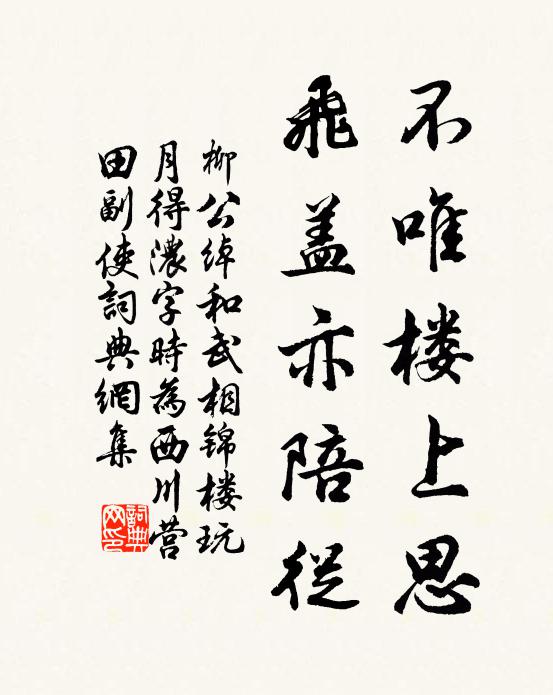 不唯楼上思
飛盖亦陪從
柳公綽和武相锦楼玩
月得濃字時為西川营
田副使詞典網集
詞典网印